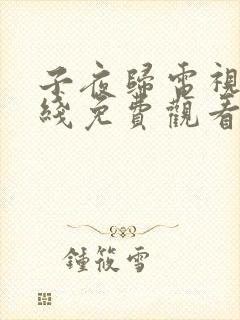 子夜歸電視
綫免費觀看
鍾筱雪